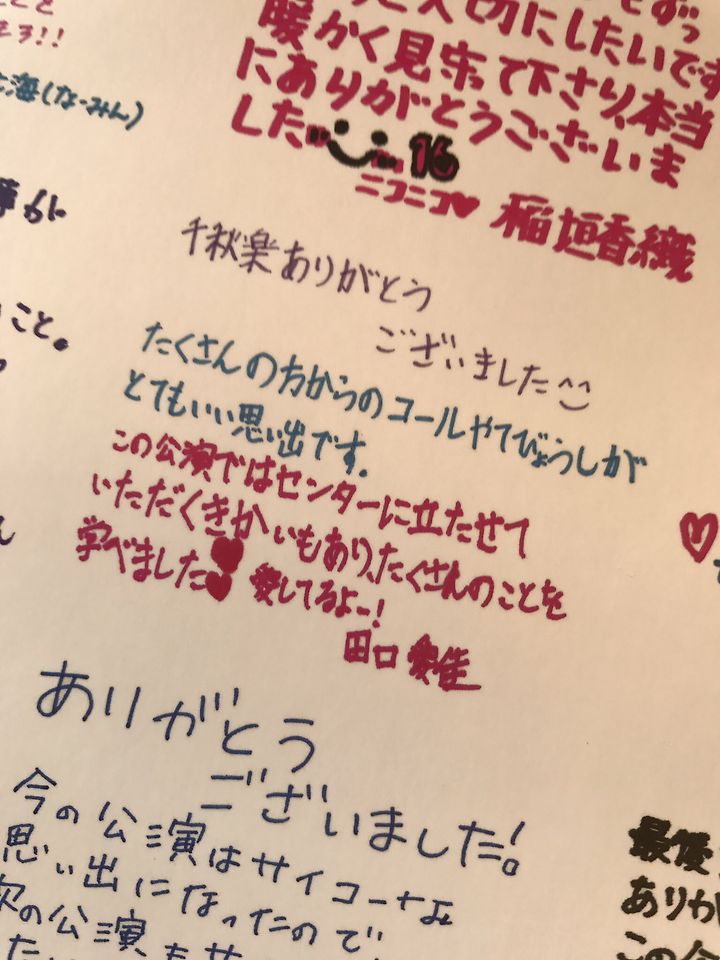 こと
海(なーみん)
こと。
と大切にしたいです
暖かく見守って下さり、本当
にありがとうございま
した
16
ニコニコ♥ 稲垣香織
千秋楽ありがとう
ございました^^
たくさんの方からのコールやてびょうしが
とてもいい思い出です。
この公演ではセンターに立たせて
いただくきかいもあり、たくさんのことを
学べました♥♥ 愛してるよー!
田口 愛佳
ありがとう
ございました!。
今の公演はサイコーなょ
思い出になったので、
次の公演も
最後
ありが
この